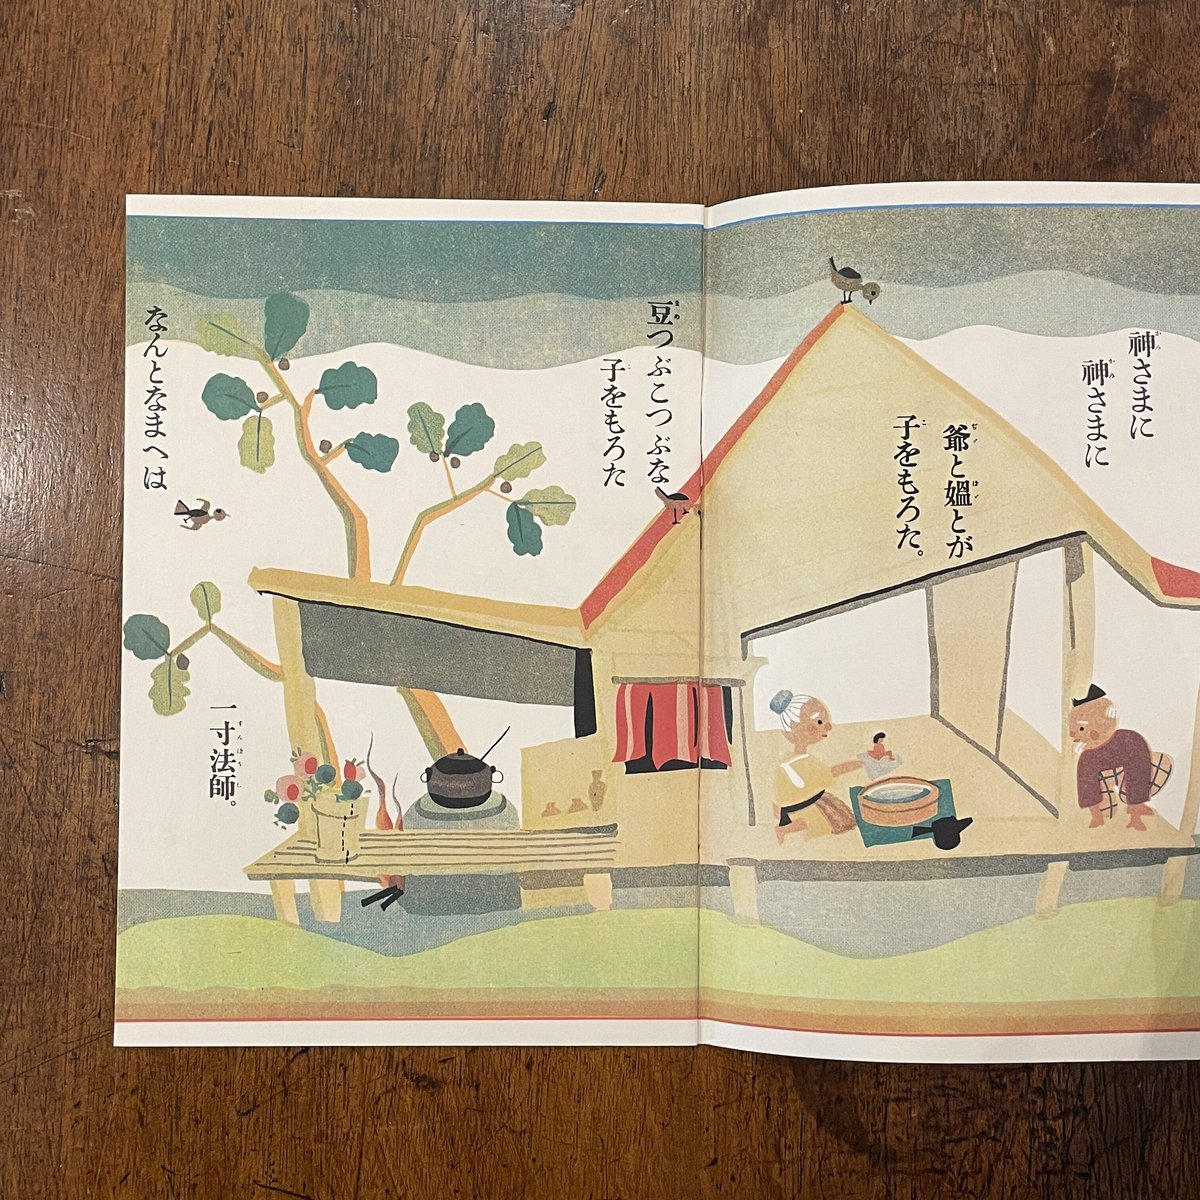 神さまに
神さまに
爺と媼とが
子をもろた。
豆つぶこつぶな
子をもろた
なんとなまへは
一寸法師。